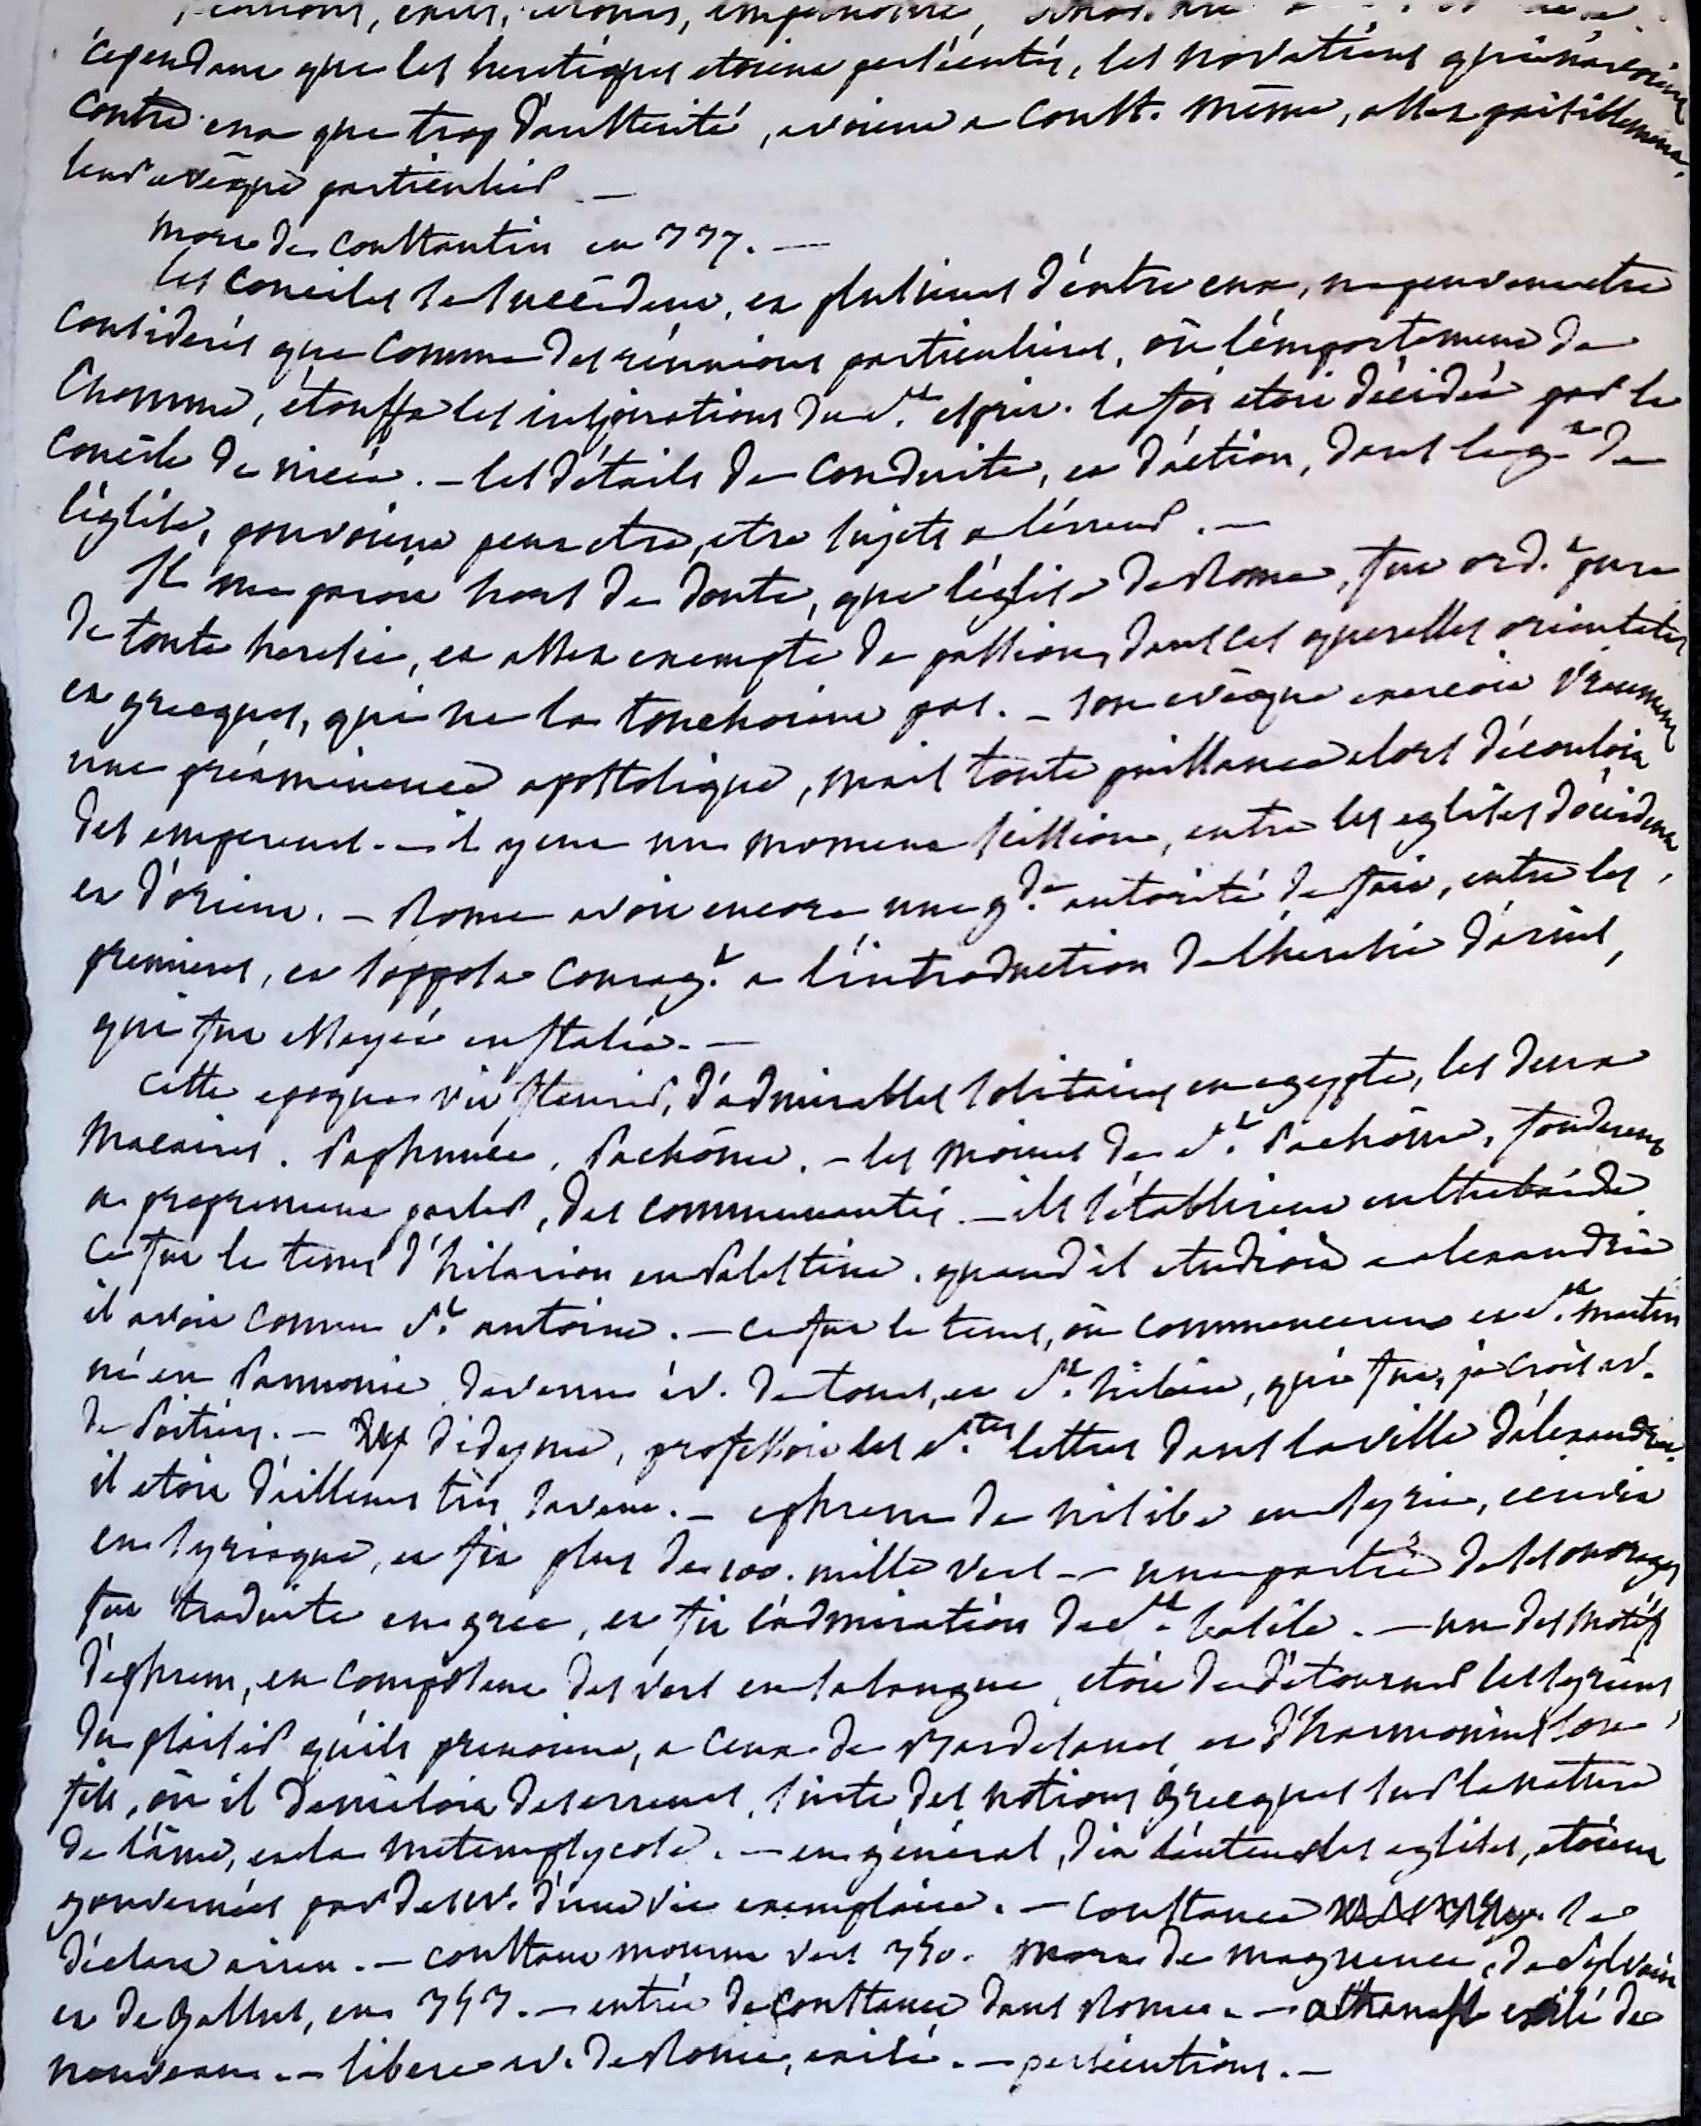 cependant que les heretiques etoient persécutés, les novatiens qui n'avoient
contre eux que trop d'austerité, avoient a Const. même, assez paisiblement,
leur evêque particulier —
mort de Constantin en 337. —
les conciles se succédent, et plusieurs d'entre eux, ne peuvent etre
considerés que comme des réunions particulieres, où l'emportement de
l'homme, étouffa les inspirations du St. esprit. la foi etoit décidée par le
concile de nicée. — les détails de conduite, et d'action, dans le gt de
l'église, pouvoient peut etre, etre sujets a l'érreur. —
Il me paroit hors de doute, que l'église de Rome, fut ordt. pure
de toute heresie, et assez exempte de passions, dans ces querelles orientales
et grecques, qui ne la touchoient pas. — son evêque exercoit vraiment
une prééminence apostolique, mais toute puissance alors découloit
des empereurs. — il y eut un moment scission, entre les eglises d'occident
et d'orient. — Rome avoit encore une gde. autorité de fait, entre les
premieres, et s'opposa couragt. a l'introduction de l'heresie d'arius,
qui fut essayée en Italie. —
Cette epoque vit fleurir, d'admirables solitaires en egypte, les deux
Macaires. Paphnuce, Pachôme. — les moines de St. Pachôme, fonderent
a proprement parler, des communautés. — ils s'établirent en thebaïde
ce fut le tems d'hilarion en Palestine. quand il etudioit a alexandrie
il avoit connu St. antoine. — ce fut le tems, où commencerent et St. martin
né en Pannonie devenu év. de tours, et St. hilaire, qui fut, je crois ev.
de Poitiers. — didyme, professoit les Stes. lettres dans la ville d'alexandrie.
il etoit d'ailleurs très savant. — ephrem de nisibe en syrie, écrivit
en syriaque, et fit plus de 100. mille vers — une partie de ses ouvrages
fut traduite en grec, et fit l'admiration de St. basile. — un des motifs
d'ephrem, en composant des vers en sa langue, etoit de détourner les syriens
du plaisir qu'ils prenoient, a ceux de Bardesanes et d'harmonius son
fils, où il demeloit des erreurs, suite des notions grecques sur la nature
de l'âme, et la metempsycose. — en général, dit l'auteur les eglises, etoient
gouvernées par des ev. d'une vie exemplaire. — Constance se
déclare arien. — Constans mourut vers 350. Mort de magnence, de Sylvain
et de Gallus, en 353. — entrée de Constance dans Rome. — athanase exilé de
nouveau. — libere ev. de Rome, exilé. — persécutions. —